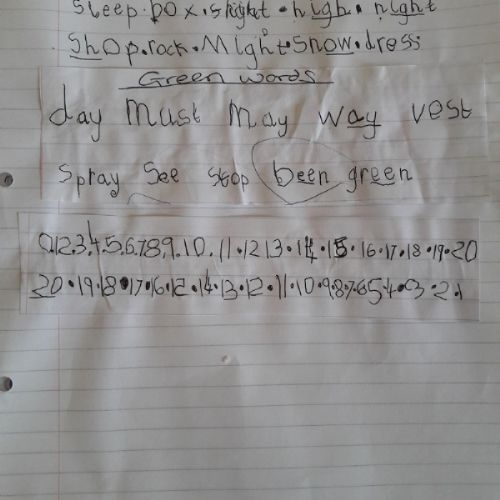 sleep.box.slight.high.night
Shop.rock.Might.Snow.dress
Green words
day Must May way vest
Spray See stop been green
0.12.3.4.5.6.7.8.9.10.11.12 13.14.15.16.17.18.19.20
20.19.18.17.16.12.14.13.12.11.10.9.8.7.6.5.4.3.2.1